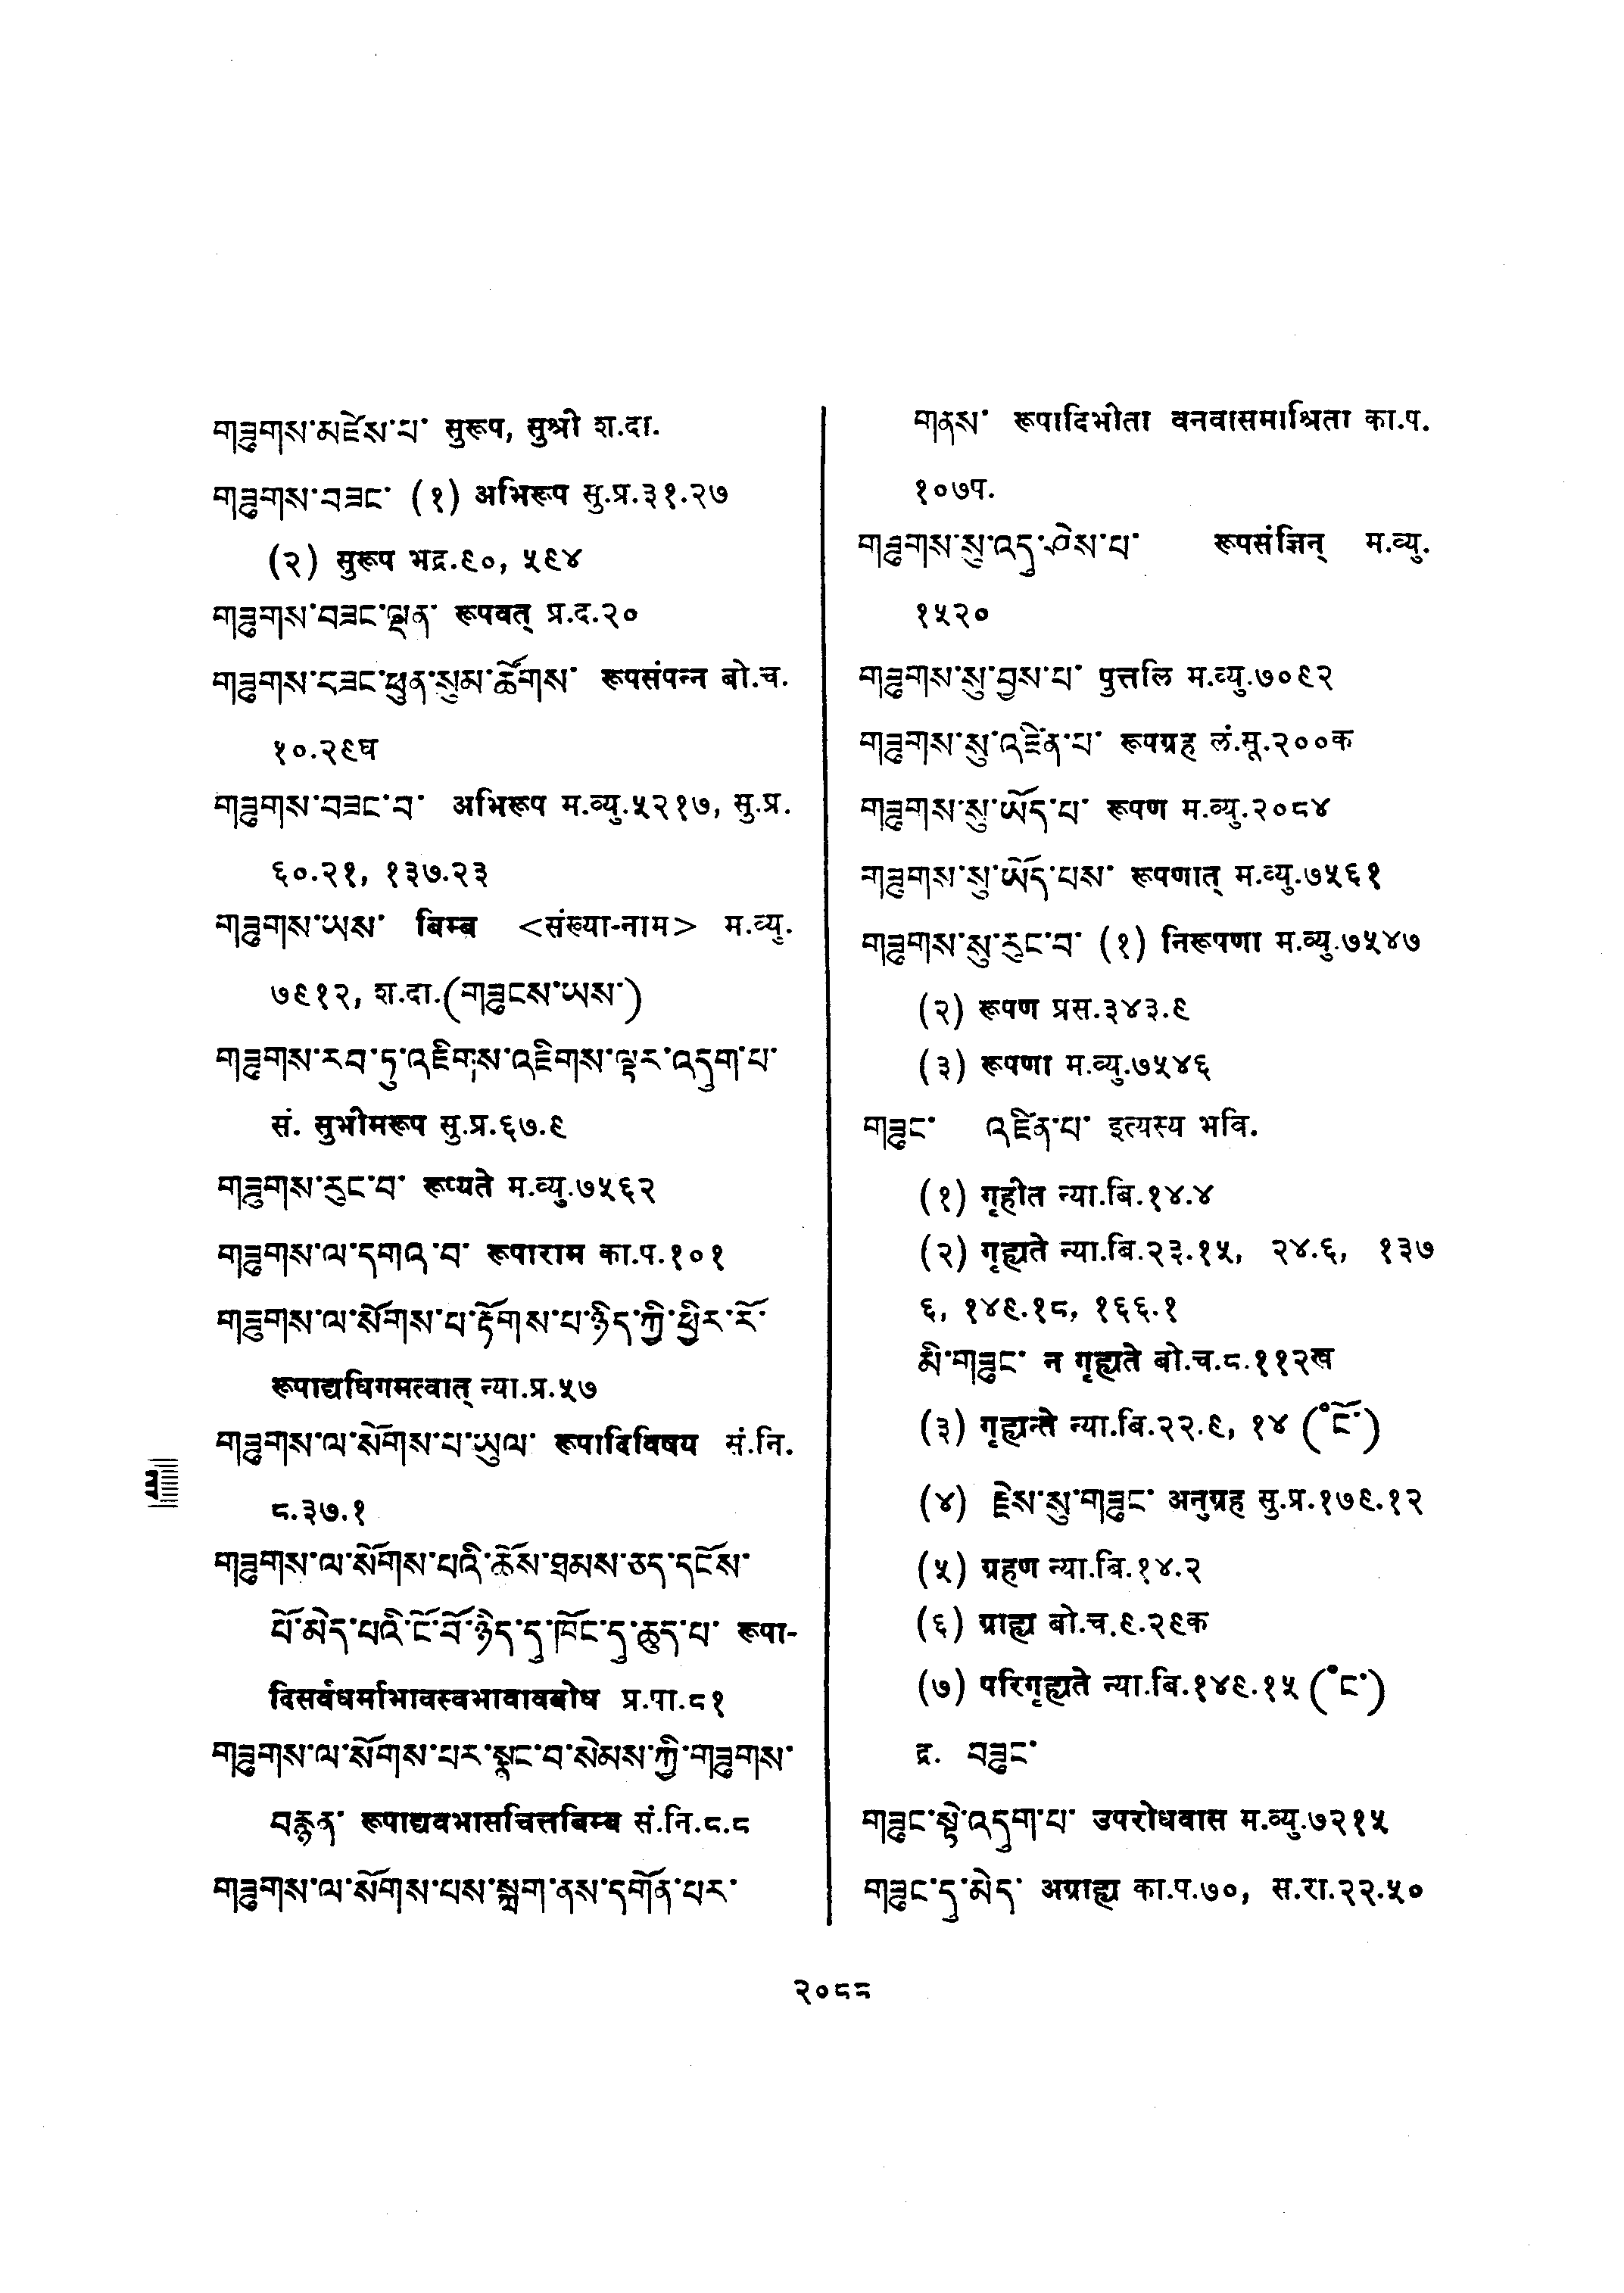 གཟུགས་མཛེས་པ་ सुरूप, सुश्री श.दा.
གཟུགས་བཟང་ (१) अभिरूप सु.प्र.३१.२७
(२) सुरूप भद्र.९०, ५९४
གཟུགས་བཟང་ལྡན་ रूपवत् प्र.द.२०
གཟུགས་དཟང་ཕུན་སུམ་ཚོགས་ रूपसंपन्न बो.च.
१०.२९घ
གཟུགས་བཟང་བ་ अभिरूप म.व्यु.५२१७, सु.प्र.
६०.२१, १३७.२३
གཟུགས་ཡས་ बिम्ब <संख्या-नाम> म.व्यु.
७९१२, श.दा.(གཟུངས་ཡས་)
གཟུགས་རབ་ཏུ་འཇིགས་འཇིགས་ལྟར་འདུག་པ་
सं. सुभीमरूप सु.प्र.६७.९
གཟུགས་རུང་བ་ रूप्यते म.व्यु.७५६२
གཟུགས་ལ་དགའ་བ་ रूपाराम का.प.१०१
གཟུགས་ལ་སོགས་པ་རྟོགས་པ་ཉིད་ཀྱི་ཕྱིར་རོ་
रूपाद्यधिगमत्वात् न्या.प्र.५७
གཟུགས་ལ་སོགས་པ་ཡུལ་ रूपादिविषय सं.नि.
८.३७.१
གཟུགས་ལ་སོགས་པའི་ཆོས་ཐམས་ཅད་དངོས་
པོ་མེད་པའི་ངོ་བོ་ཉིད་དུ་ཁོང་དུ་ཆུད་པ་ रूपा-
दिसर्वधर्माभावस्वभावावबोध प्र.पा.८१
གཟུགས་ལ་སོགས་པར་སྣང་བ་སེམས་ཀྱི་གཟུགས་
བརྙན་ रूपाद्यवभासचित्तबिम्ब सं.नि.८.८
གཟུགས་ལ་སོགས་པས་སྐྲག་ནས་དགོན་པར་
གནས་ रूपादिभीता वनवासमाश्रिता का.प.
१०७प.
གཟུགས་སུ་འདུ་ཤེས་པ་ रूपसंज्ञिन् म.व्यु.
१५२०
གཟུགས་སུ་བྱས་པ་ पुत्तलि म.व्यु.७०९२
གཟུགས་སུ་འཛིན་པ་ रूपग्रह लं.सू.२००क
གཟུགས་སུ་ཡོད་པ་ रूपण म.व्यु.२०८४
གཟུགས་སུ་ཡོད་པས་ रूपणात् म.व्यु.७५६१
གཟུགས་སུ་རུང་བ་ (१) निरूपणा म.व्यु.७५४७
(२) रूपण प्रस.३४३.९
(३) रूपणा म.व्यु.७५४६
གཟུང་ འཛིན་པ་ इत्यस्य भवि.
(१) गृहीत न्या.बि.१४.४
(२) गृह्यते न्या.बि.२३.१५, २४.६, १३७
६, १४९.१८, १६६.१
མི་གཟུང་ न गृह्यते बो.च.८.११२ख
(३) गृह्यन्ते न्या.बि.२२.९, १४ (°ངོ་)
(४) རྗེས་སུ་གཟུང་ अनुग्रह सु.प्र.१७९.१२
(५) ग्रहण न्या.बि.१४.२
(६) ग्राह्य बो.च.९.२९क
(७) परिगृह्यते न्या.बि.१४९.१५ (°ང་)
द्र. བཟུང་
གཟུང་སྟེ་འདུག་པ་ उपरोधवास म.व्यु.७२१५
གཟུང་དུ་མེད་ अग्राह्य का.प.७०, स.रा.२२.५०
२०८८